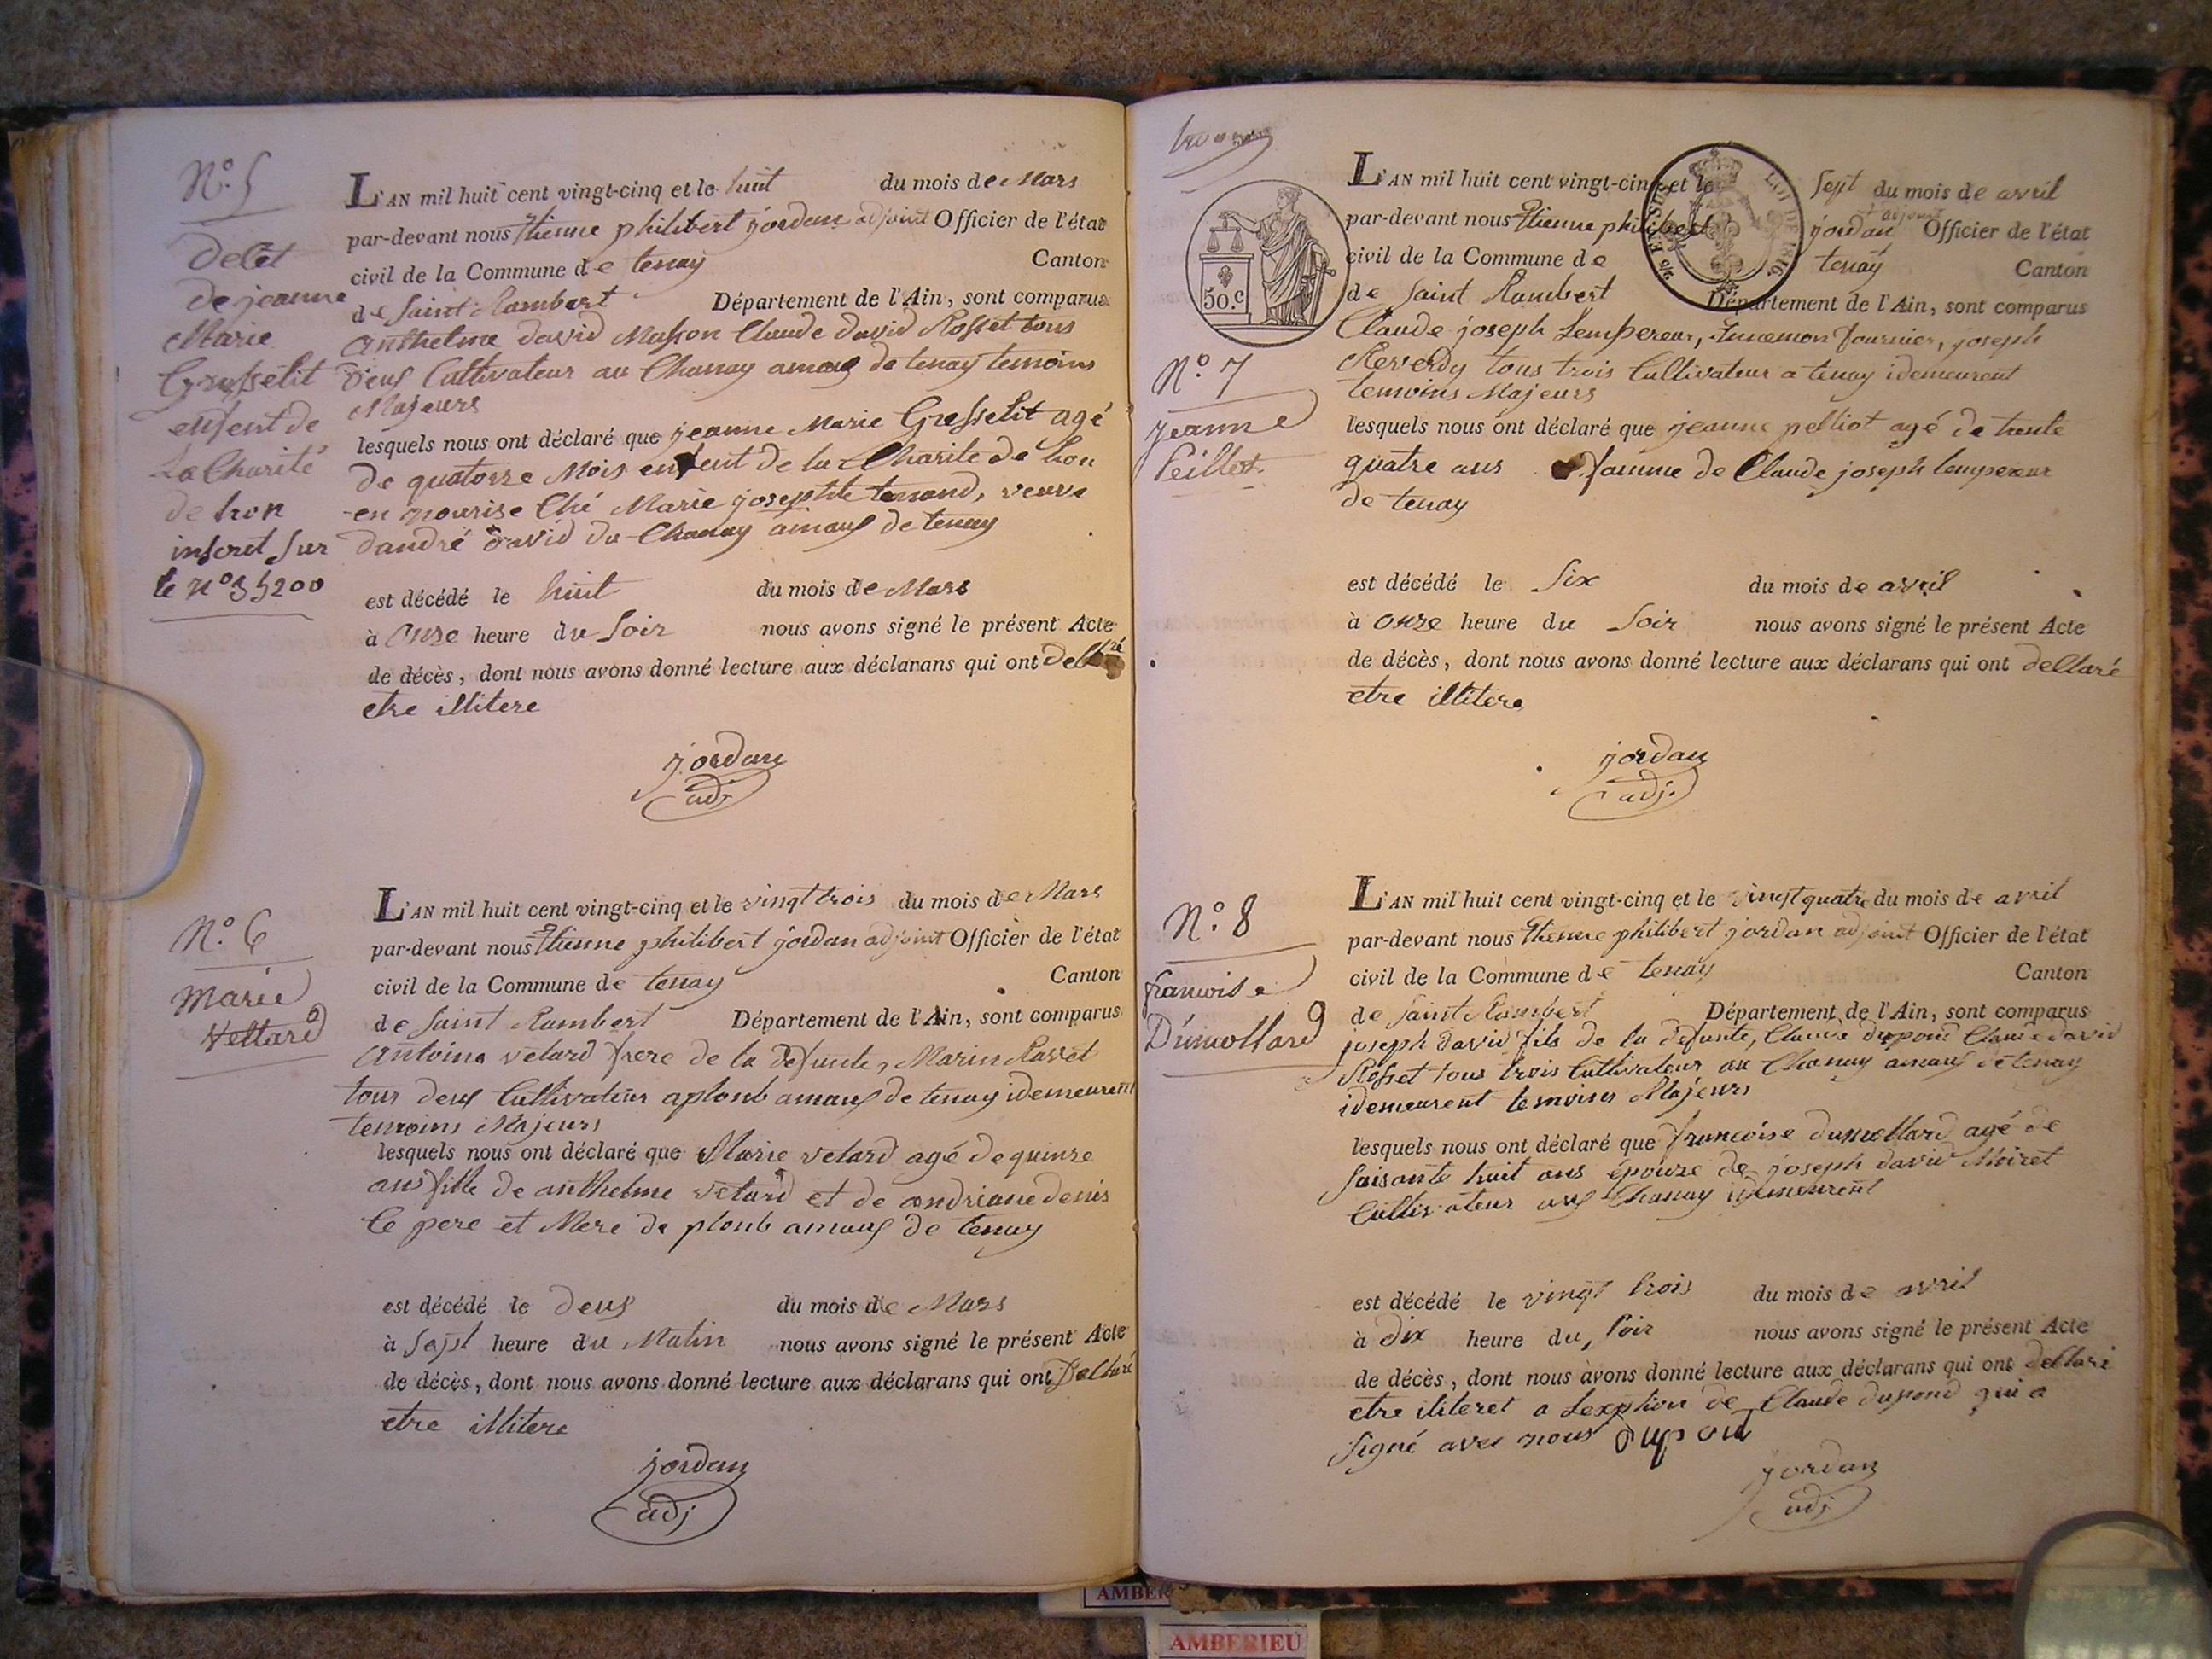 N.° 5
decét
de jeanne
Marie
Gresselit
enfent de
La Charité
de Lion
inscret sur
le N° 35200
L'AN mil huit cent vingt-cinq et le huit du mois de Mars
par-devant nous Etienne philibert jordan adjoint Officier de l'état
civil de la Commune de tenay Canton
de Saint Rambert Département de l'Ain, sont comparus
Anthelme david Masson Claude david Rosset tous
deus Cultivateur au Chanay amaus de tenay temoins
Majeurs
lesquels nous ont déclaré que jeanne Marie Gresselit agé
de quatorze Mois enfent de la Charite de Lion
en nourise Ché Marie josephte tenand, veuve
dandré david du Chanay amaus de tenay
est décédé le huit du mois de Mars
à Onze heure du Soir nous avons signé le présent Acte
de décès, dont nous avons donné lecture aux déclarans qui ont
etre illitere
jordan
adj
N.° 6
Marie
Vettard
L'AN mil huit cent vingt-cinq et le vingt trois du mois de Mars
par-devant nous Etienne philibert jordan adjoint Officier de l'état
civil de la Commune de tenay Canton
de Saint Rambert Département de l'Ain, sont comparus
Antoine vetard frere de la defunte, Marin Ravet
tour deus Cultivateur aplonb amaus de tenay idemeurent
temoins Majeurs
lesquels nous ont déclaré que Marie vetard agé de quinze
ans fille de anthelme vetard et de andriane denis
le pere et Mere de plonb amaus de tenay
est décédé le deus du mois de Mars
à Sept heure du Matin nous avons signé le présent Acte
de décès, dont nous avons donné lecture aux déclarans qui ont Dellaré
etre illitere
jordan
adj
50.c
N.° 7
jeanne
Peillot
L'AN mil huit cent vingt-cinq et le Sept du mois de avril
par-devant nous Etienne philibert jordan adjoint Officier de l'état
civil de la Commune de tenay Canton
de Saint Rambert Département de l'Ain, sont comparus
Claude joseph Lempereur, fournier, joseph
Reverdy tous trois Cultivateur a tenay idemeurent
temoins Majeurs
lesquels nous ont déclaré que jeanne pelliot agé de trente
quatre ans famme de Claude joseph lempereur
de tenay
est décédé le Six du mois de avril
à onze heure du Soir nous avons signé le présent Acte
de décès, dont nous avons donné lecture aux déclarans qui ont dellaré
etre illitere
jordan
adj.
N.° 8
francoise
Dumollard
L'AN mil huit cent vingt-cinq et le vingt quatre du mois de avril
par-devant nous Etienne philibert jordan adjoint Officier de l'état
civil de la Commune de tenay Canton
de Saint Rambert Département de l'Ain, sont comparus
joseph david fils de la defunte, Claude dupond Claude david
Rosset tous trois Cultivateur au Chanay amaus de tenay
idemeurent temoins Majeurs
lesquels nous ont déclaré que francoise dumollard agé de
soisante huit ans épouze de joseph david Miret
Cultivateur aus Chanay idemeurent
est décédé le vingt trois du mois de avril
à dix heure du Soir nous avons signé le présent Acte
de décès, dont nous avons donné lecture aux déclarans qui ont dellaré
etre iliteret a Lexption de Claude dupond qui a
signé avec nous dupond
jordan
adj
AMBERIEU